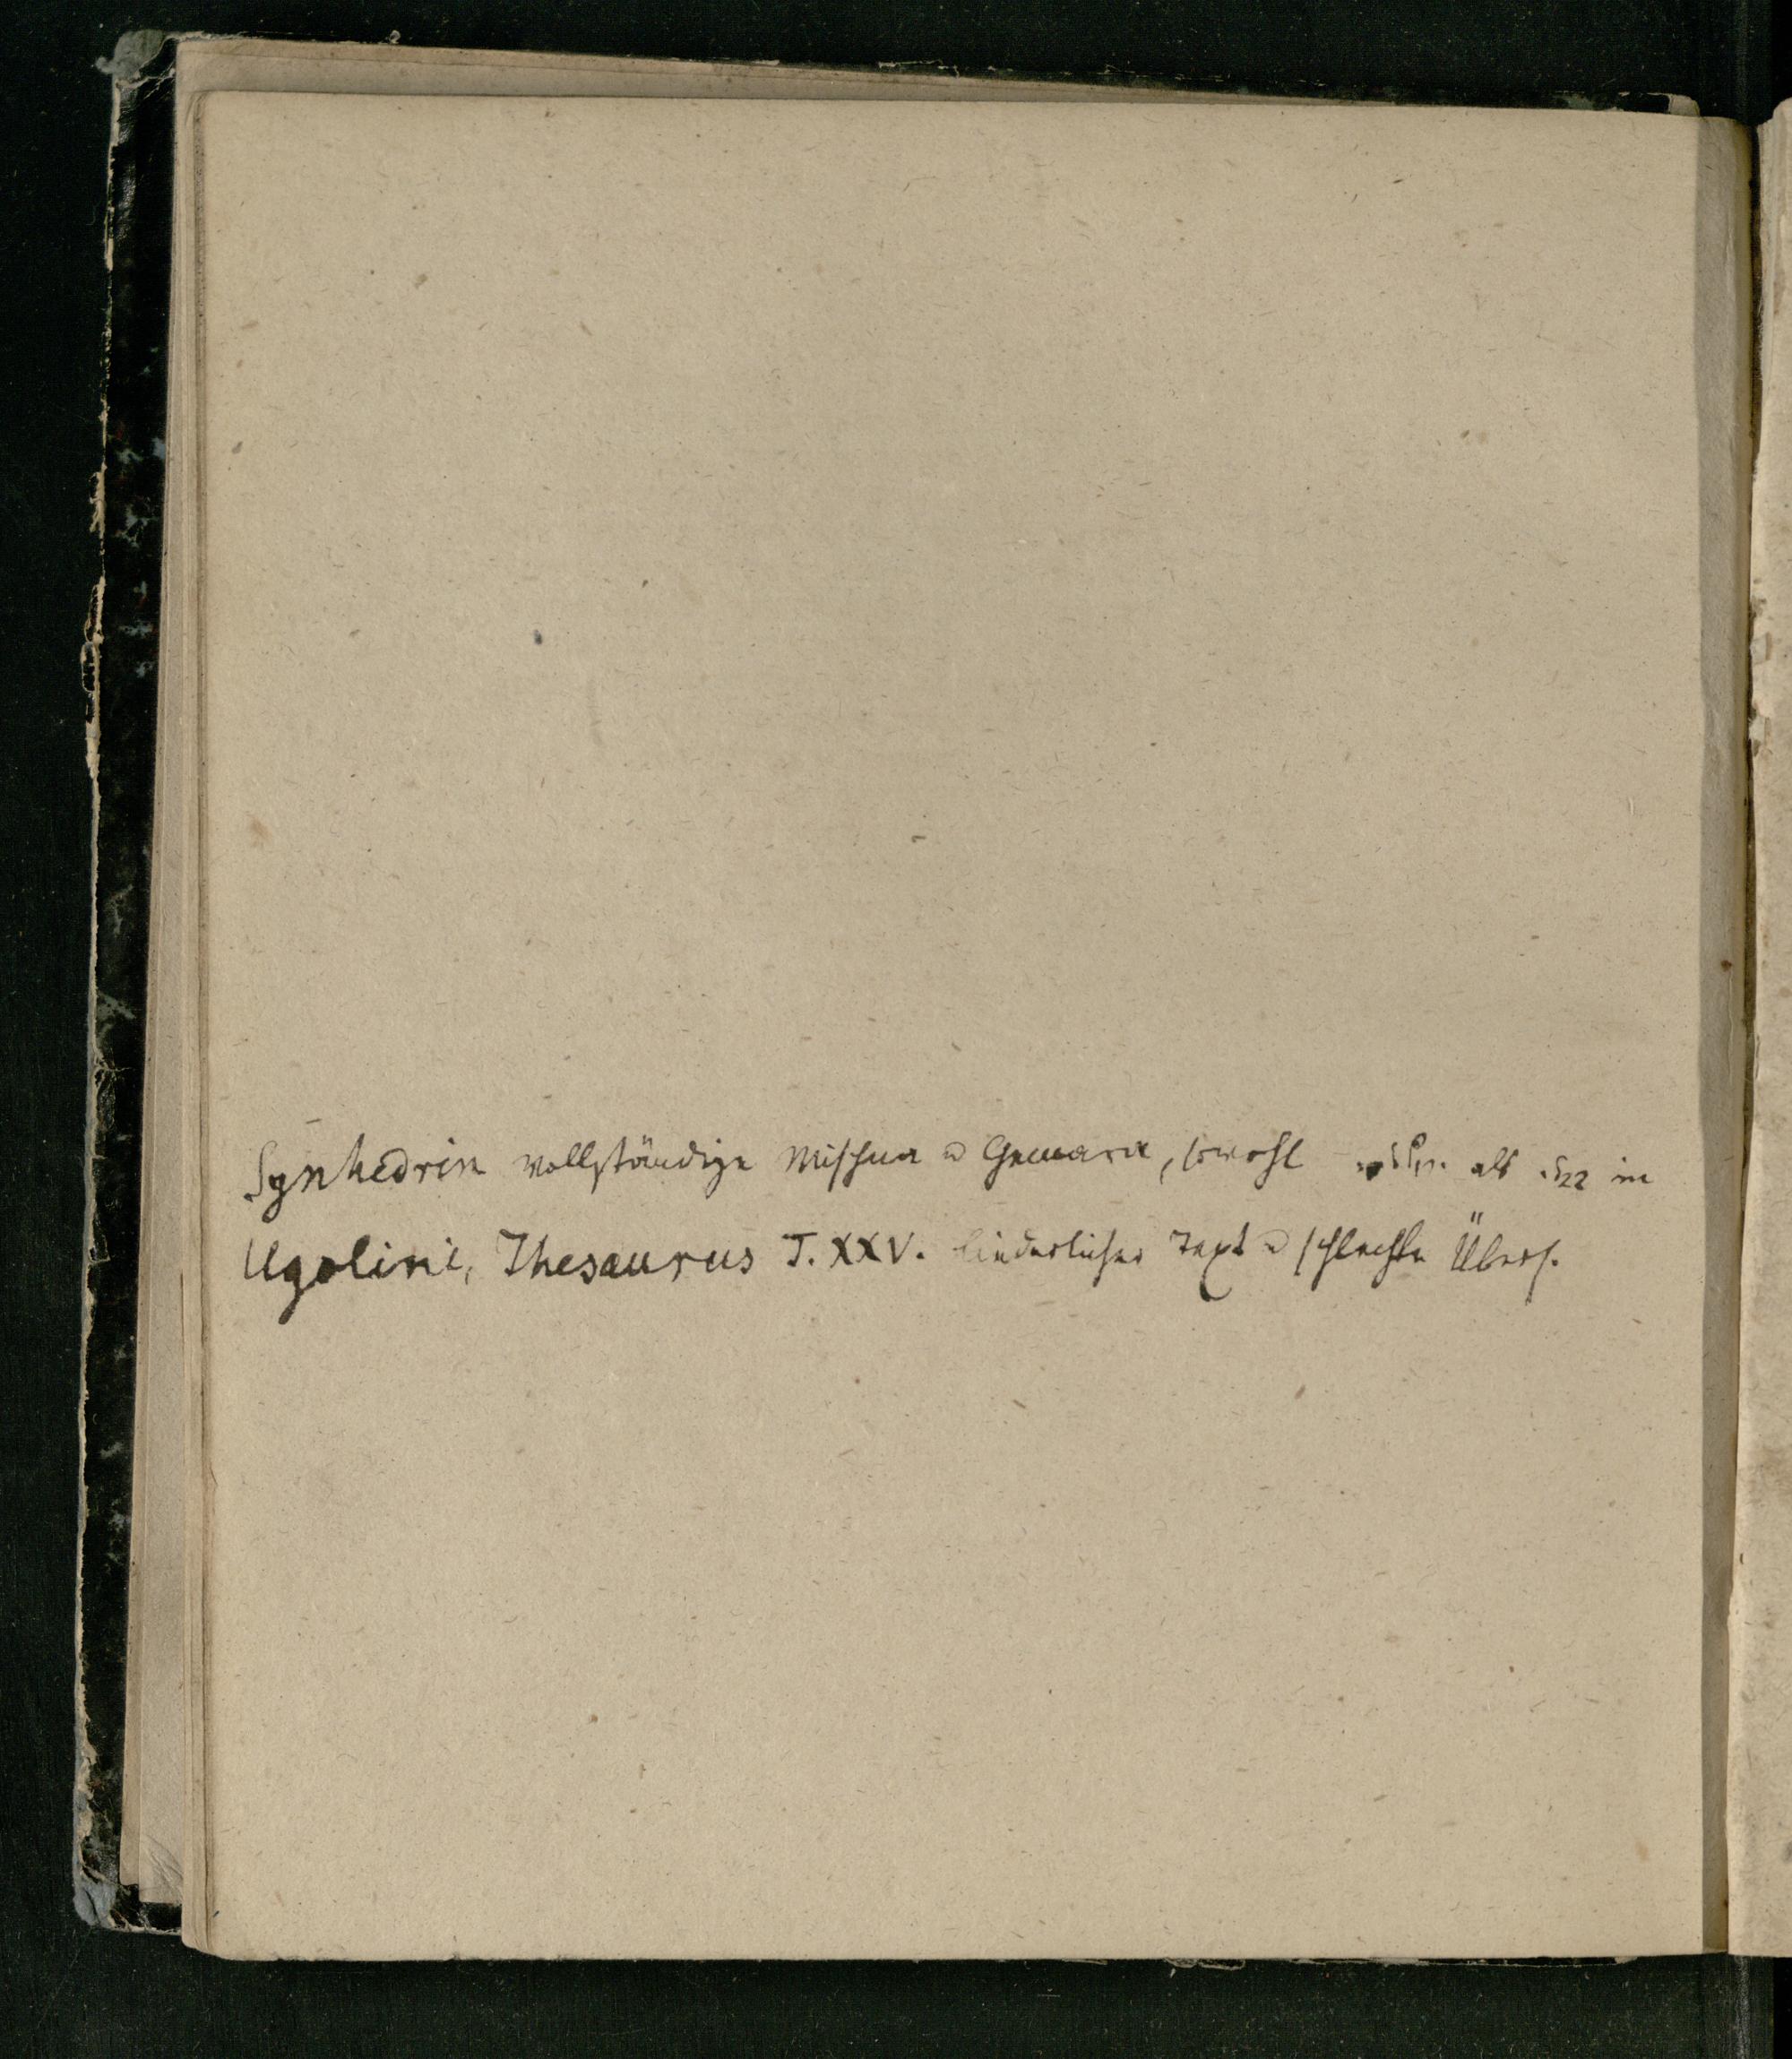 Synhedrin vollständige Mischna u Gemara, sowohl ירושל. als בבל. in
Ugolini, Thesaurus T. XXV. liederlicher Text u schlechte Übers.